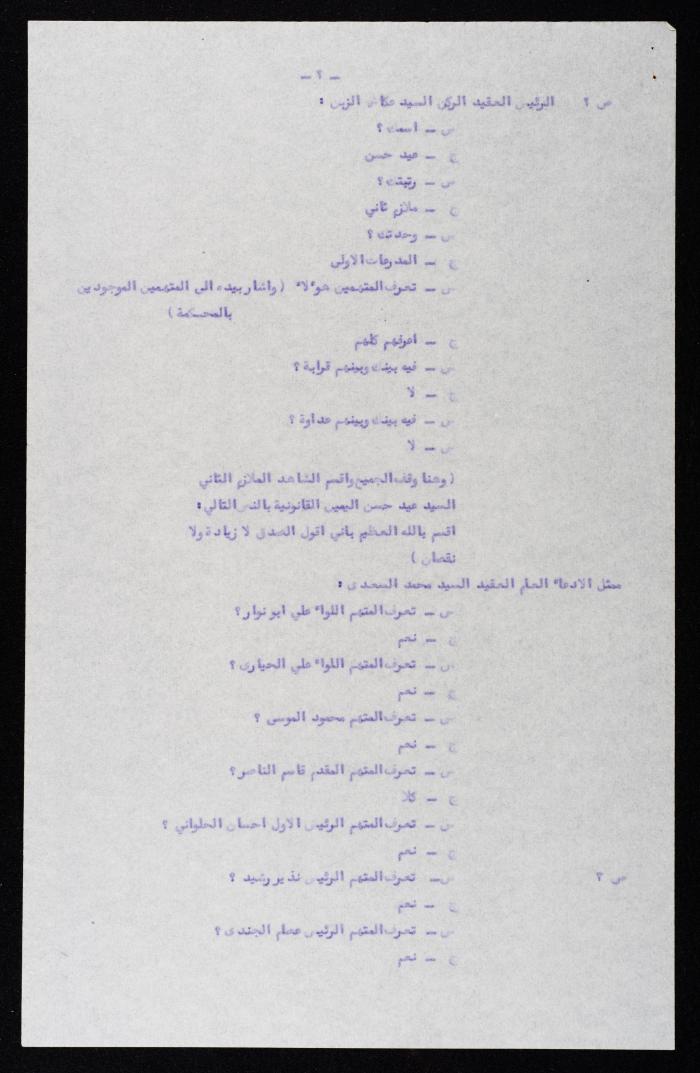 - ٢ -
ص ٢ الرئيس العقيد الركن السيد عكاش الزبن :
س - اسمك ؟
ج - عيد حسن
س - رتبتك ؟
ج - ملازم ثاني
س - وحدتك ؟
ج - المدرعات الاولى
س - تعرف المتهمين هوءلاء ( واشار بيده الى المتهمين الموجودين
بالمحكمة )
ج - اعرفهم كلهم
س - فيه بينك وبينهم قرابة ؟
ج - لا
س - فيه بينك وبينهم عداوة ؟
س - لا
( وهنا وقف الجميع واقسم الشاهد الملازم الثاني
السيد عيد حسن اليمين القانونية بالنص التالي :
اقسم بالله العظيم باني اقول الصدق لا زيادة ولا
نقصان )
ممثل الادعاء العام العقيد السيد محمد السعدى :
س - تعرف المتهم اللواء علي ابو نوار ؟
ج - نعم
س - تعرف المتهم اللواء علي الحيارى ؟
ج - نعم
س - تعرف المتهم محمود الموسى ؟
ج - نعم
س - تعرف المتهم المقدم قاسم الناصر ؟
ج - كلا
س - تعرف المتهم الرئيس الاول احسان الحلواني ؟
ج - نعم
ص ٢ س - تعرف المتهم الرئيس نذير رشيد ؟
ج - نعم
س - تعرف المتهم الرئيس عصام الجندى ؟
ج - نعم